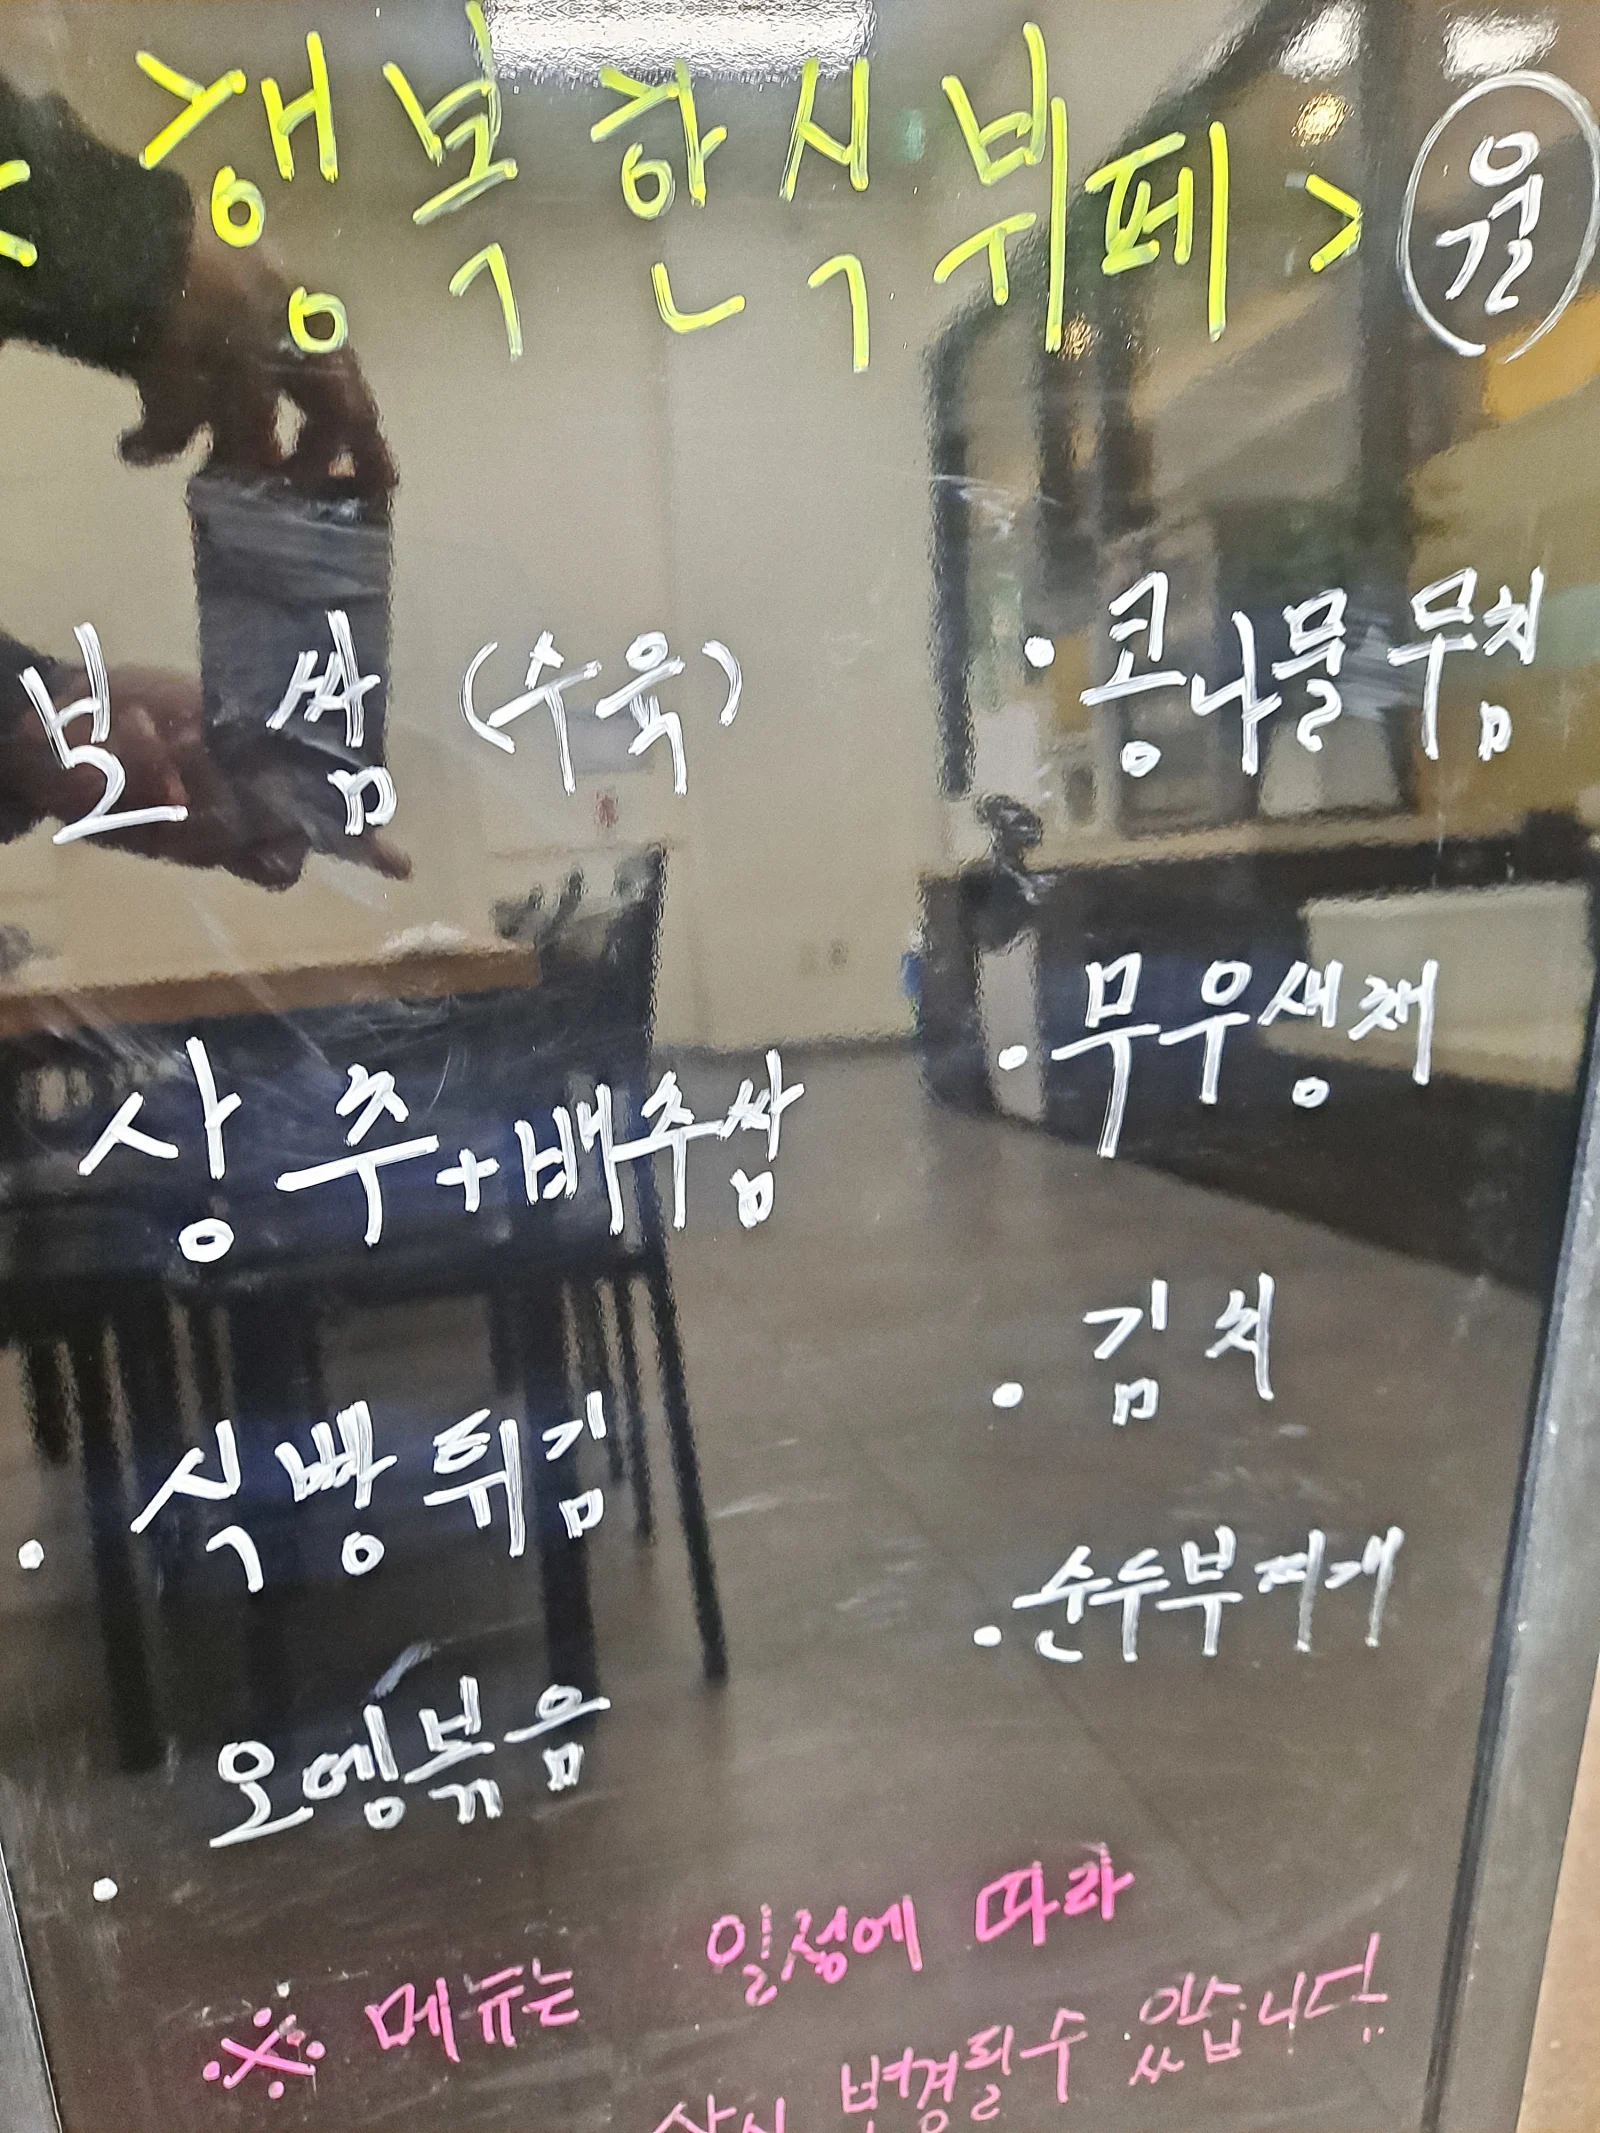 < 행복한식뷔페> 월
보쌈 (수육)
상추+배추쌈
· 식빵튀김
· 오엥볶음
· 콩나물무침
· 무우생채
· 김치
· 순두부찌개
※ 메뉴는 일정에 따라
상시 변경될수 있습니다.